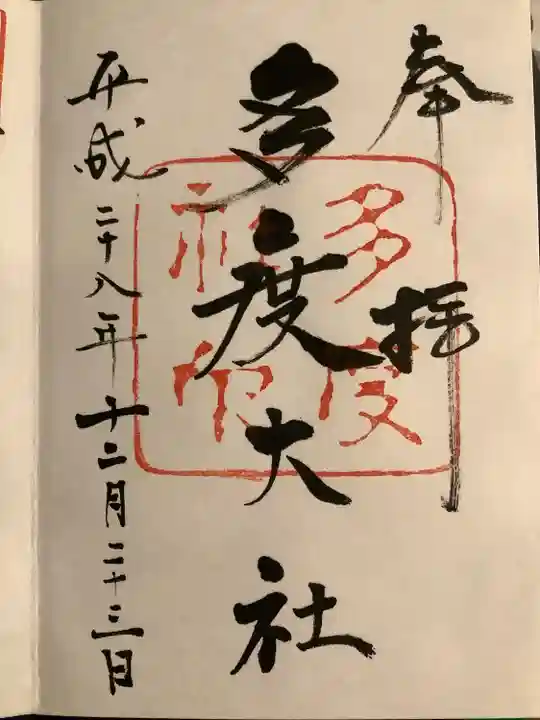 奉拝
多度大社
多度
社印
平成二十八年十二月二十三日